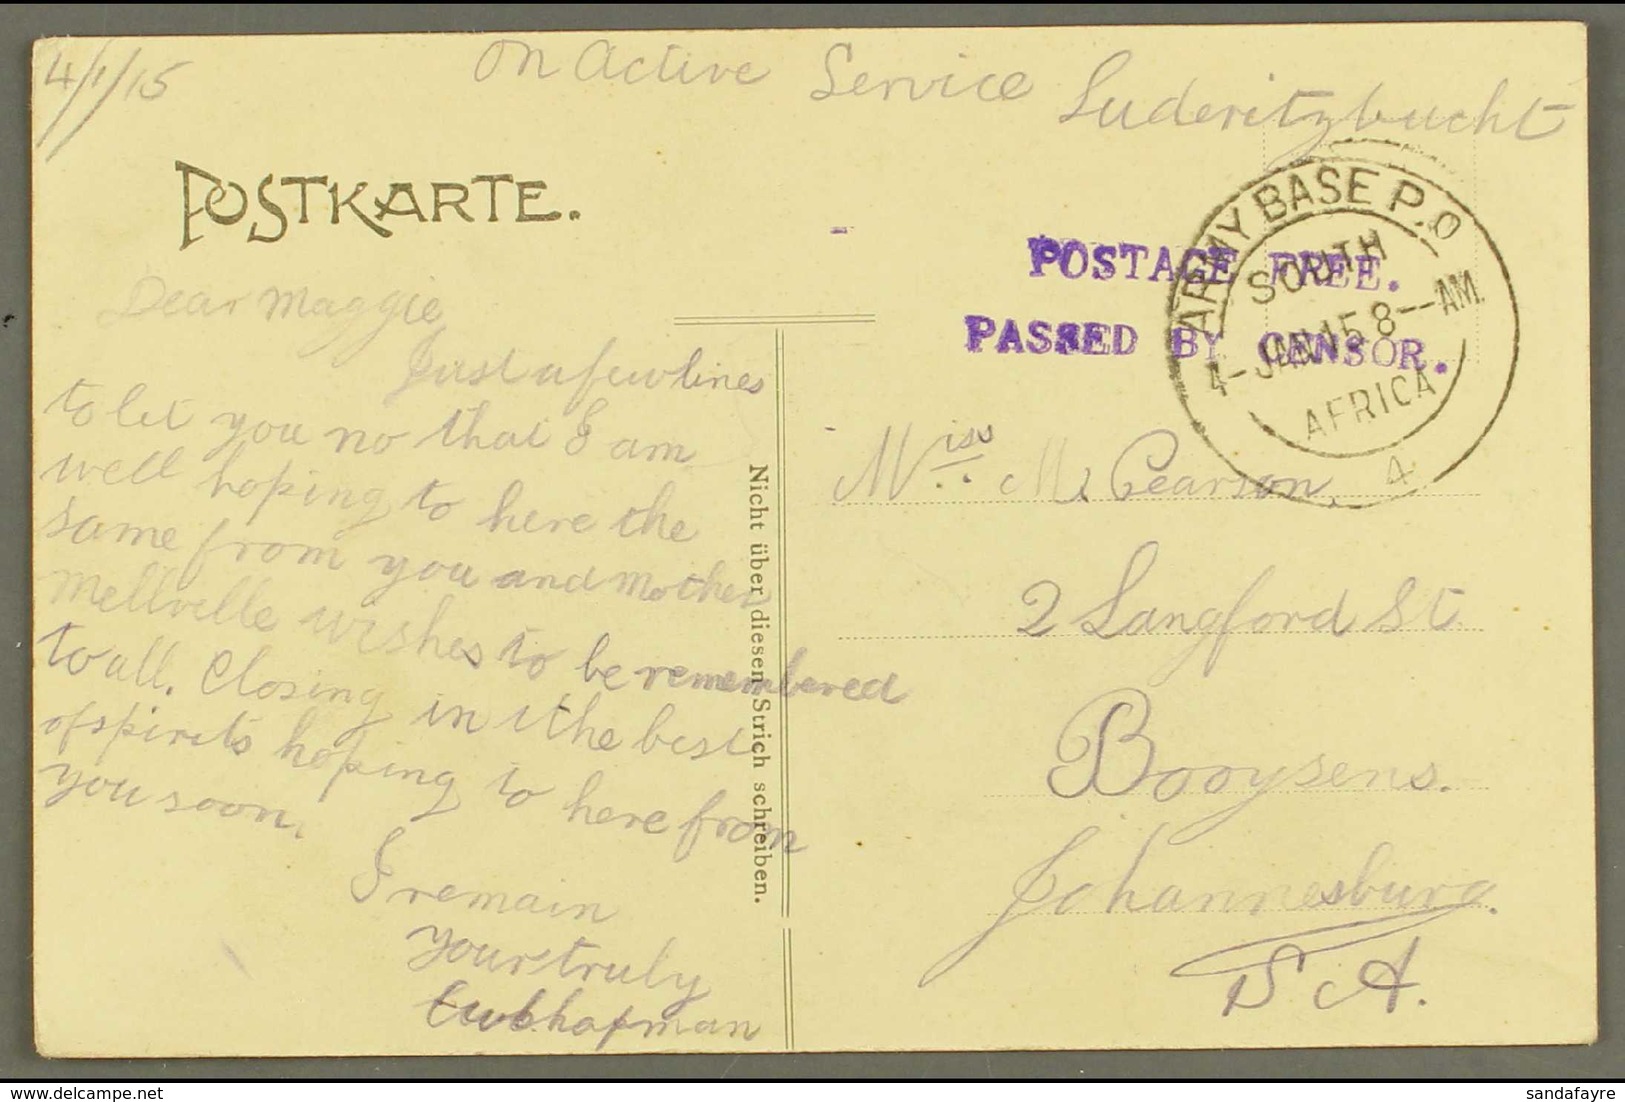 4/1/15
On Active Service Luderitzbucht
POSTKARTE.
POSTAGE FREE.
PASSED BY CENSOR.
ARMY BASE P.O
SOUTH
4-JAN 15 8--AM.
AFRICA
4
Dear Maggie
Just a few lines
to let you no that I am
well hoping to here the
same from you and Mother
Mellville wishes to be remembered
to all. Closing in the best
of spirits hoping to here from
you soon.
I remain
yours truly
Nicht über diesen Strich schreiben.
Miss M. Pearson.
2 Langford St.
Booysens.
Johannesburg.
S.A.
delcampe.net
sandafayre